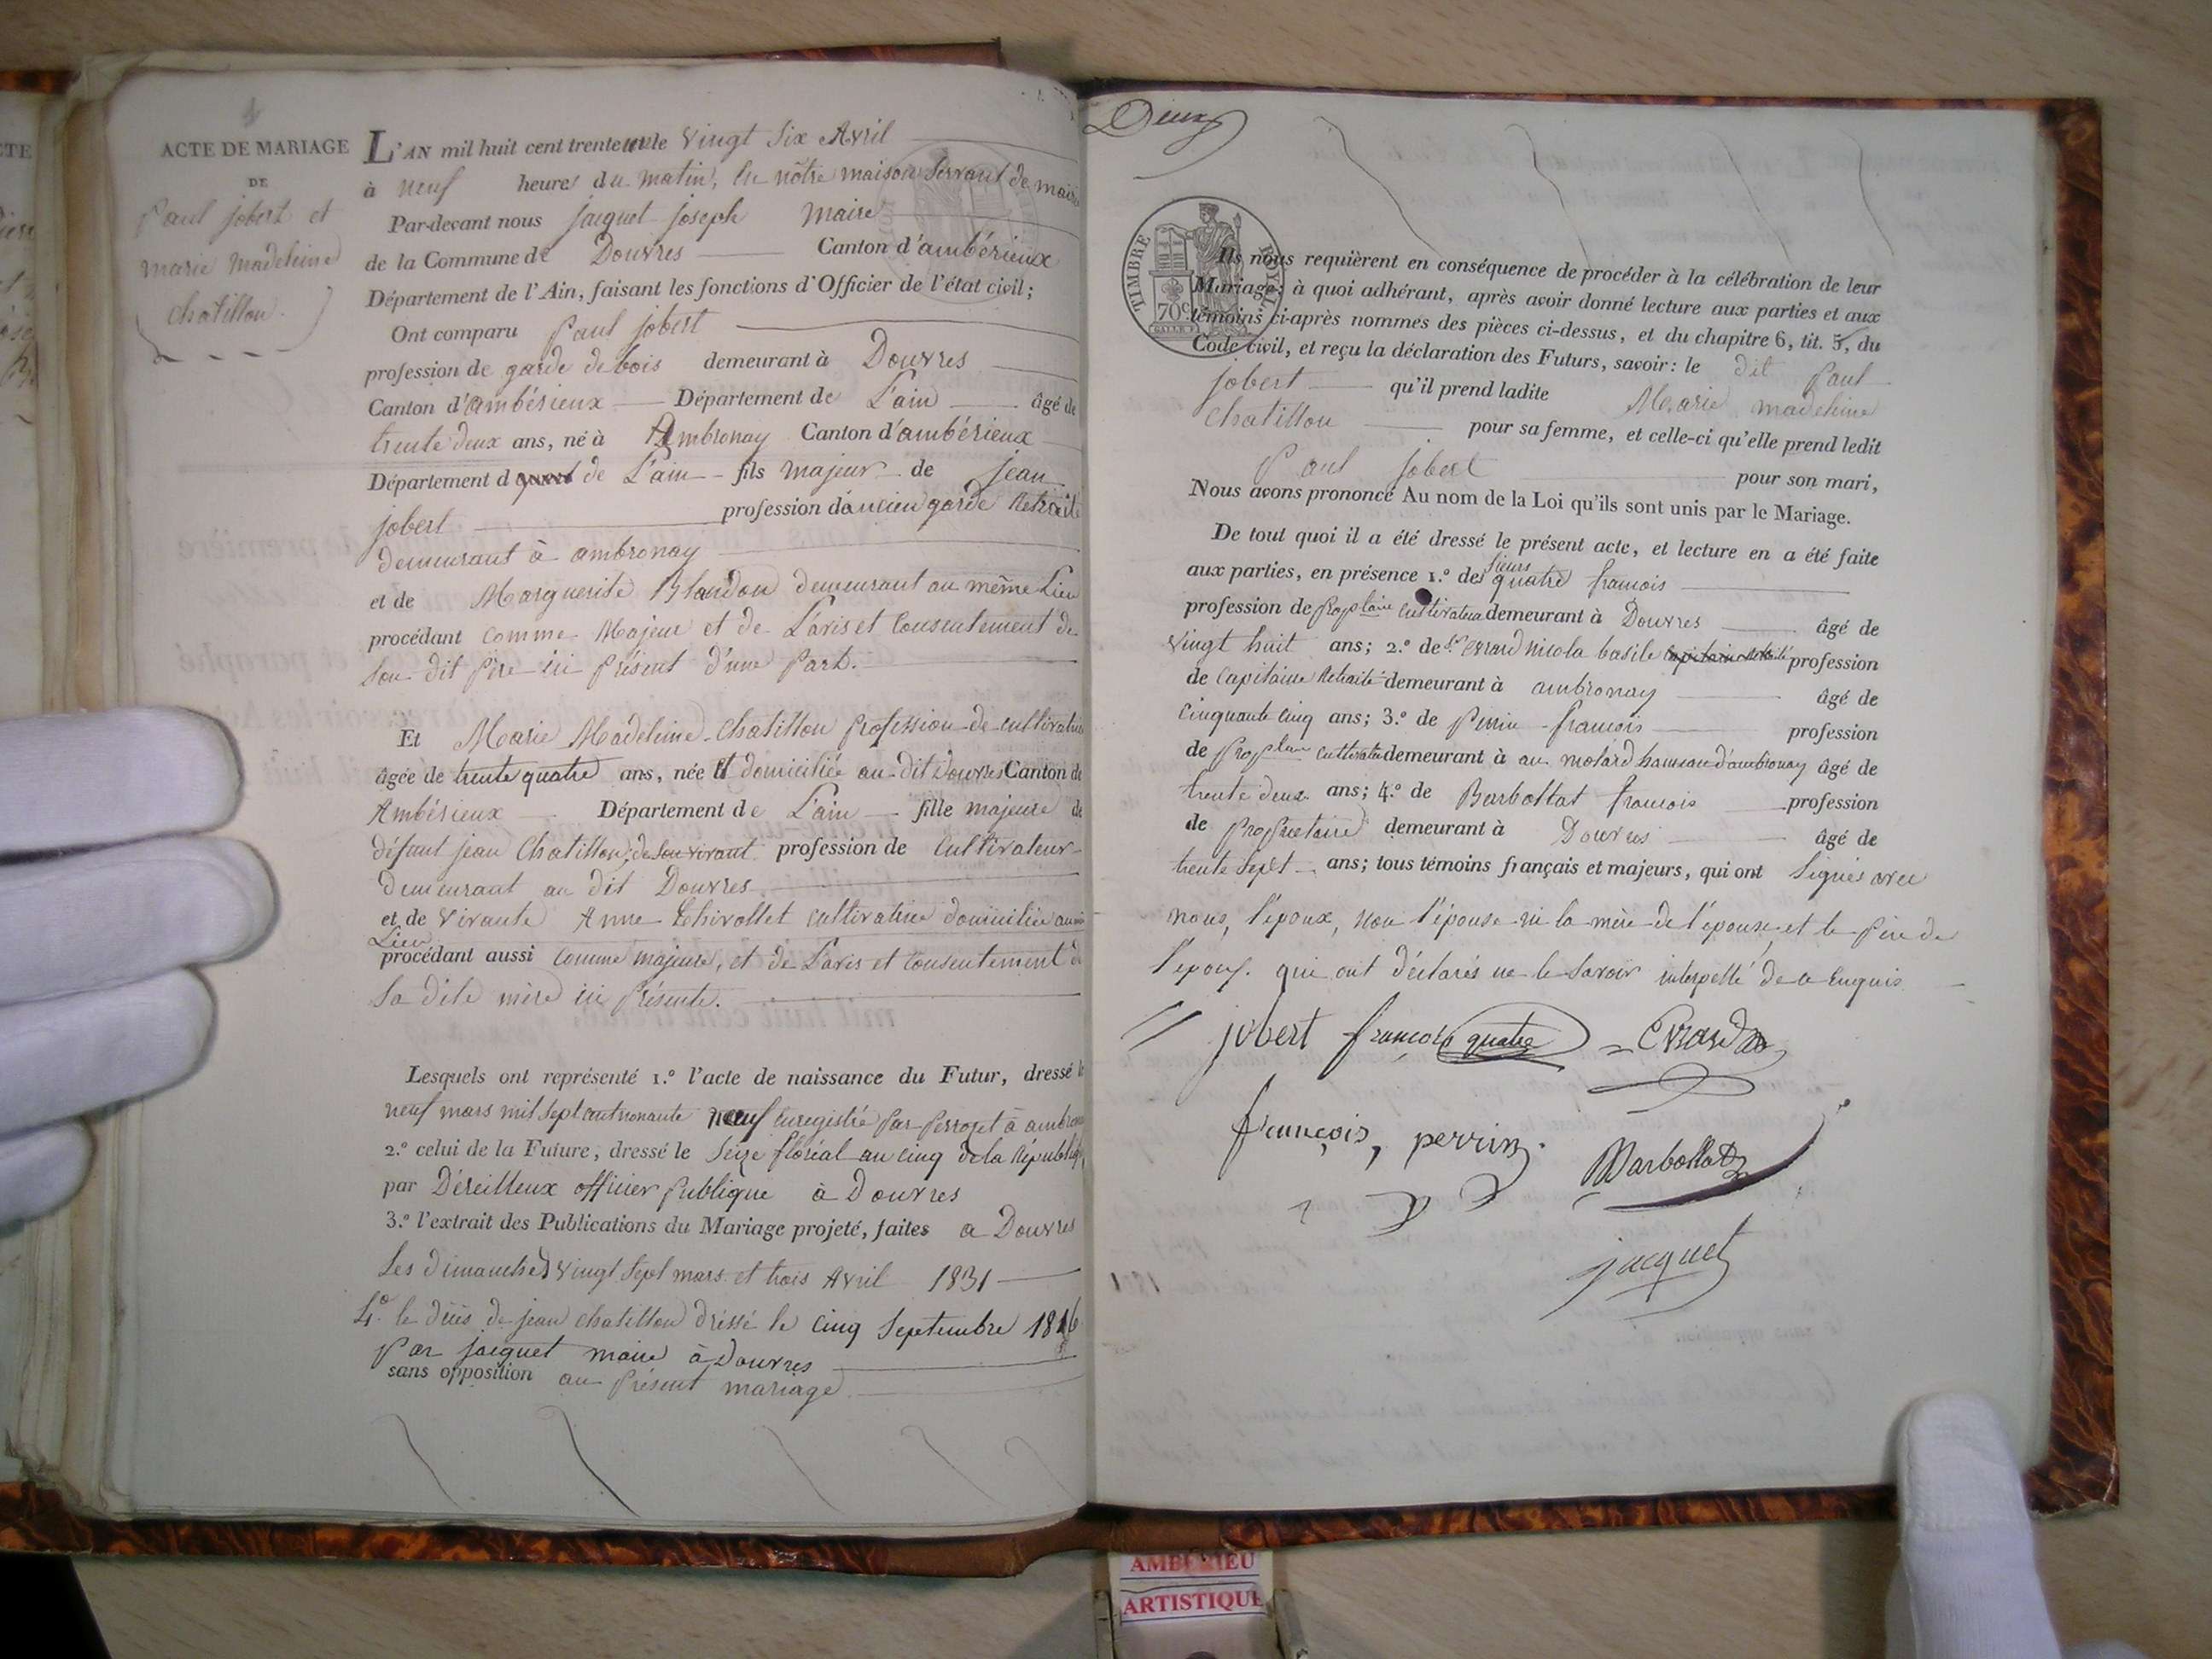 ACTE DE MARIAGE
DE
Paul jobert et
marie madeleine
chatillon.
L'AN mil huit cent trente un le vingt Six Avril
à neuf heures du matin, en nôtre maison Servant de mairie
Par-devant nous jacquet joseph maire
de la Commune de Douvres Canton d'ambérieux
Département de l'Ain, faisant les fonctions d'Officier de l'état civil;
Ont comparu Paul jobert
profession de garde de bois demeurant à Douvres
Canton d'ambérieux Département de L'ain âgé de
trente deux ans, né à Ambronay Canton d'ambérieux
Département d de L'ain fils majeur de jean
jobert profession d'ancien garde Retraité
demeurant à ambronay
et de Marguerite Blandon demeurant au même Lieu
procédant comme Majeur et de L'avis et Consentement de
Son dit Père ici Présent d'une Part.
Et Marie Madeleine Chatillon Profession de cultivatrice
âgée de trente quatre ans, née et domiciliée au dit Douvres Canton de
Ambérieux Département de L'ain fille majeure de
défunt jean Chatillon, de Son vivant profession de Cultivateur
demeurant au dit Douvres
et de vivante Anne Thivollet cultivatrice domiciliée au même
Lieu
procédant aussi comme majeure, et de L'avis et Consentement de
Sa dite mère ici Présente.
Lesquels ont représenté 1.º l'acte de naissance du Futur, dressé le
neuf mars mil Sept cent nonante neuf Enregistré Par Perrozet à ambronay
2.º celui de la Future, dressé le Seize floréal an cinq de la République
par Déreilleux officier Publique à Douvres
3.º l'extrait des Publications du Mariage projeté, faites a Douvres
Les dimanches vingt Sept mars et trois Avril 1831
4.º le décès de jean chatillon dréssé le cinq Septembre 1816
Par jacquet maire à Douvres
sans opposition au Présent mariage
Deux
TIMBRE ROYAL
70c
Ils nous requièrent en conséquence de procéder à la célébration de leur
Mariage; à quoi adhérant, après avoir donné lecture aux parties et aux
témoins ci-après nommés des pièces ci-dessus, et du chapitre 6, tit. 5, du
Code civil, et reçu la déclaration des Futurs, savoir: le dit Paul
jobert qu'il prend ladite Marie madeleine
chatillon pour sa femme, et celle-ci qu'elle prend ledit
Paul jobert pour son mari,
Nous avons prononcé Au nom de la Loi qu'ils sont unis par le Mariage.
De tout quoi il a été dressé le présent acte, et lecture en a été faite
Sieurs
aux parties, en présence 1.º des quatre francois
profession de Proptaire Cultivateur demeurant à Douvres âgé de
vingt huit ans; 2.º de Sr Evrard nicola basile Capitaine Retraité profession
de Capitaine Retraité demeurant à ambronay âgé de
Cinquante Cinq ans; 3.º de Perrin francois profession
de Proptaire Cultivateur demeurant à au molard hameau d'ambronay âgé de
trente deux ans; 4.º de Barbollat francois profession
de Propriétaire demeurant à Douvres âgé de
trente Sept ans; tous témoins français et majeurs, qui ont Signés avec
nous, l'époux, non l'épouse ni la mère de l'épouse, et le Père de
l'époux. qui ont déclarés ne le Savoir interpellé de ce Enquis
jobert françois quatre Evrard
françois, perrin
Barbollat
jacquet
AMBERIEU
ARTISTIQUE